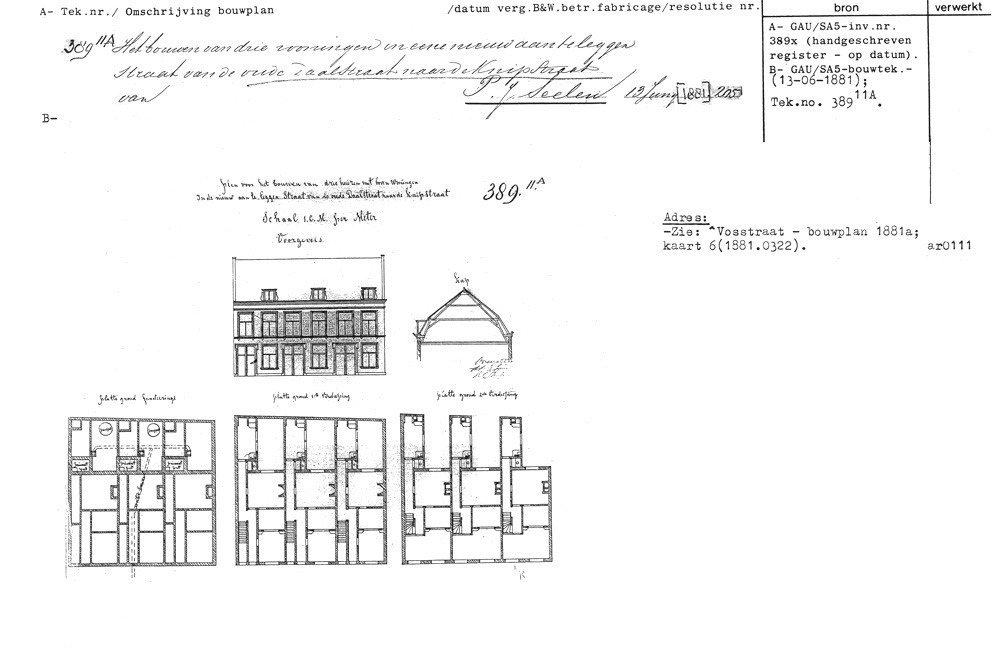 A- Tek.nr./ Omschrijving bouwplan /datum verg.B&W.betr.fabricage/resolutie nr. bron verwerkt
389 11A Het bouwen van drie woningen in eene nieuw aan te leggen
straat van de oude Daalstraat naar de Knipstraat
van P. J. Seelen 13 Juny [1881]
B-
A- GAU/SA5-inv.nr.
389x (handgeschreven
register - op datum).
B- GAU/SA5-bouwtek.-
(13-06-1881);
Tek.no. 389 11A.
plan voor het bouwen van drie huizen met boven Woningen
In de nieuw aan te leggen Straat van de oude Daalstraat naar de Knipstraat
389. 11.A
Schaal 1 c.M. per Meter
Voorgevel
Adres:
-Zie: ^Vosstraat - bouwplan 1881a;
kaart 6(1881.0322). ar0111
Kap
platte grond fundeering
platte grond 1ste Verdieping
platte grond 2de Verdieping